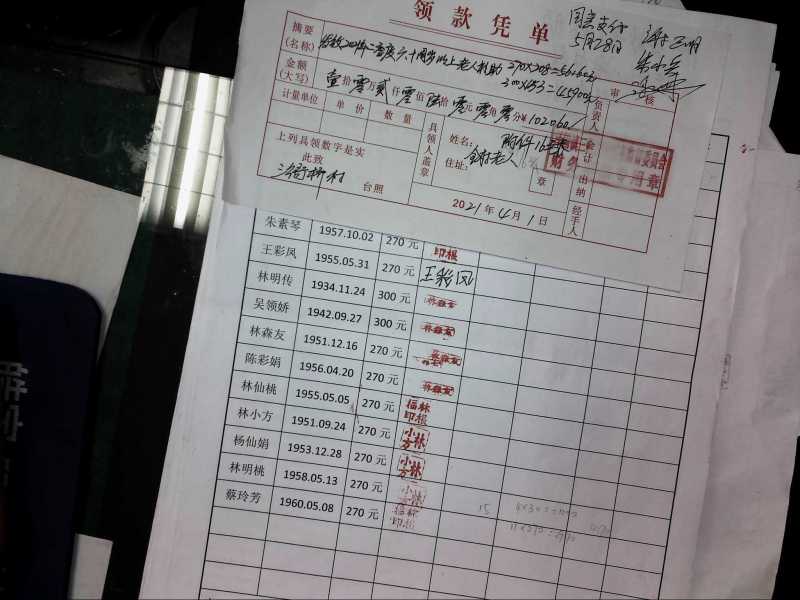 领款凭单
同意支付
5月28日
摘要
(名称)
六十周岁以上老人补助
270×208=56160元
300×153=45900元
金额
(大写)
壹拾零万贰仟零佰陆拾零元零角零分¥102060/
审核
计量单位
单价
数量
具领人盖章
姓名:
附件16张
住址:
老人
章
负责人
会计
出纳
经手人
上列具领数字是实
此致
台照
2021年4月1日
朱素琴 1957.10.02 270元 印根
王彩凤 1955.05.31 270元 王彩凤
林明传 1934.11.24 300元
吴领娇 1942.09.27 300元
林森友 1951.12.16 270元
陈彩娟 1956.04.20 270元
林仙桃 1955.05.05 270元 福林印根
林小方 1951.09.24 270元 小林方
杨仙娟 1953.12.28 270元 小林方
林明桃 1958.05.13 270元 小林
蔡玲芳 1960.05.08 270元 福林印根
15